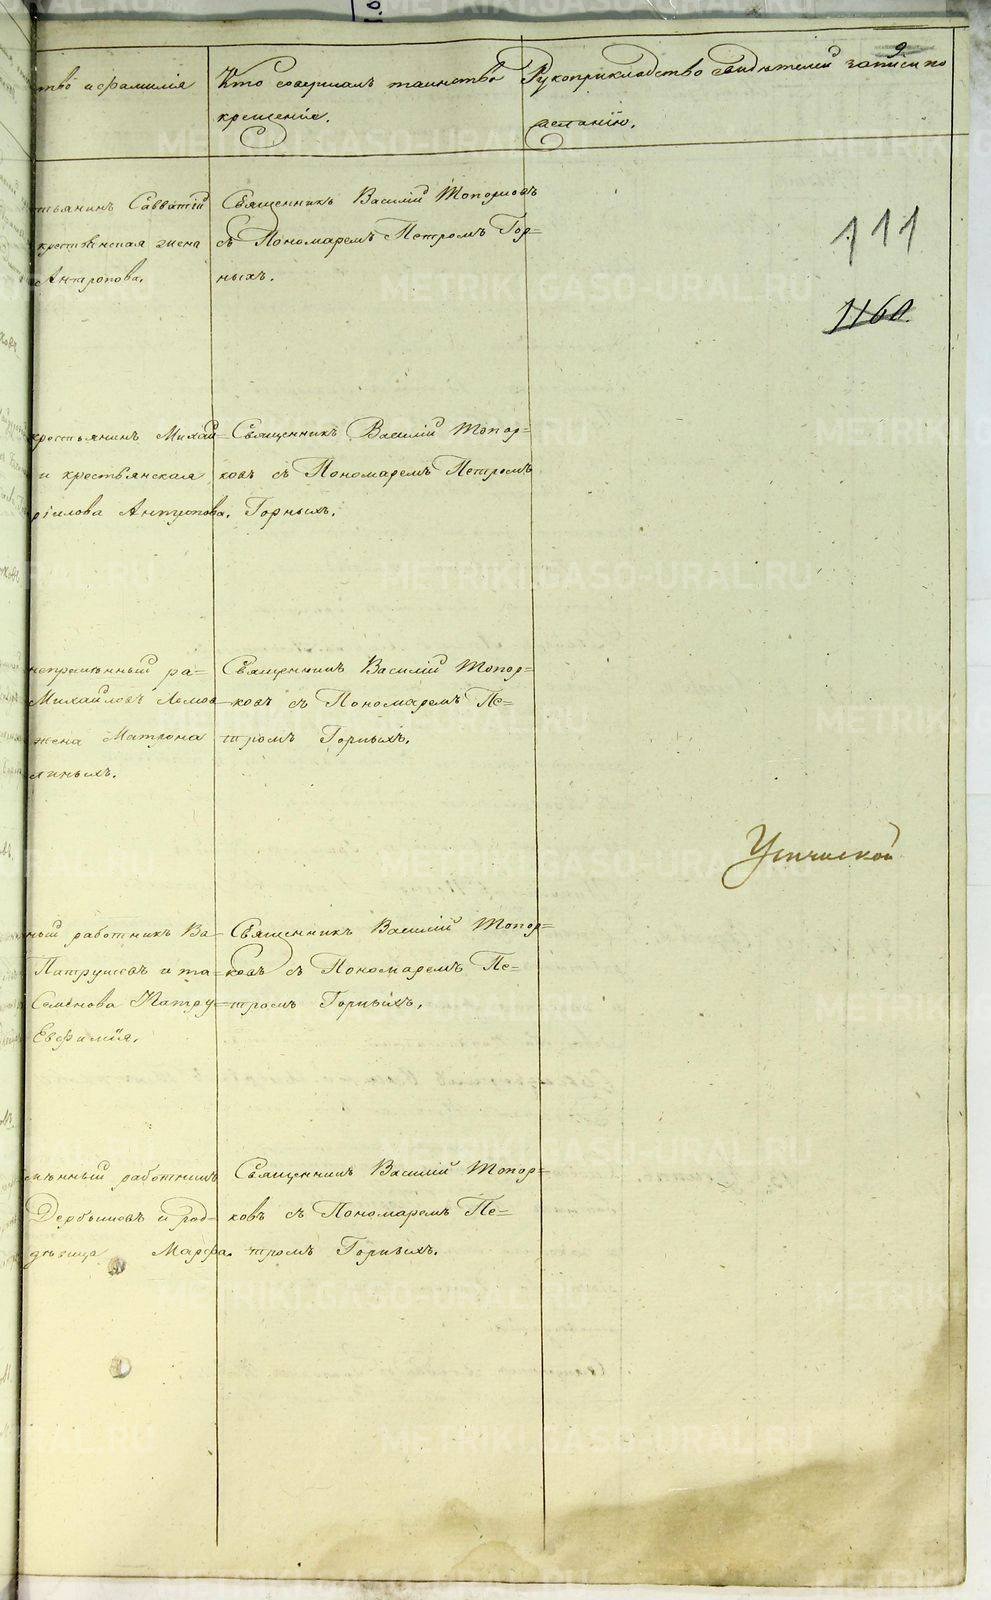 9
тво и фамилія
Кто совершалъ таинство
крещенія.
Рукоприкладство свидѣтелей записи по
желанію.
111
1160
тьянинъ Савватій
крестьянская жена
Антропова.
Священникъ Василій Топорковъ
съ Пономаремъ Петромъ Гор=
ныхъ.
крестьянинъ Михай=
и крестьянская
рилова Антропова.
Священникъ Василій Топор=
ковъ съ Пономаремъ Петромъ
Горныхъ.
непремѣнный ра=
Михайловъ
жена Матрона
линыхъ.
Священникъ Василій Топор=
ковъ съ Пономаремъ Пе=
тромъ Горныхъ.
ный работникъ Ва=
Патрушевъ и та=
Семенова Патру=
Евфимія.
Священникъ Василій Топор=
ковъ съ Пономаремъ Пе=
тромъ Горныхъ.
мѣнный работникъ
Дербышевъ и род=
дѣвица Марѳа.
Священникъ Василій Топор=
ковъ съ Пономаремъ Пе=
тромъ Горныхъ.
METRIKI.GASO-URAL.RU